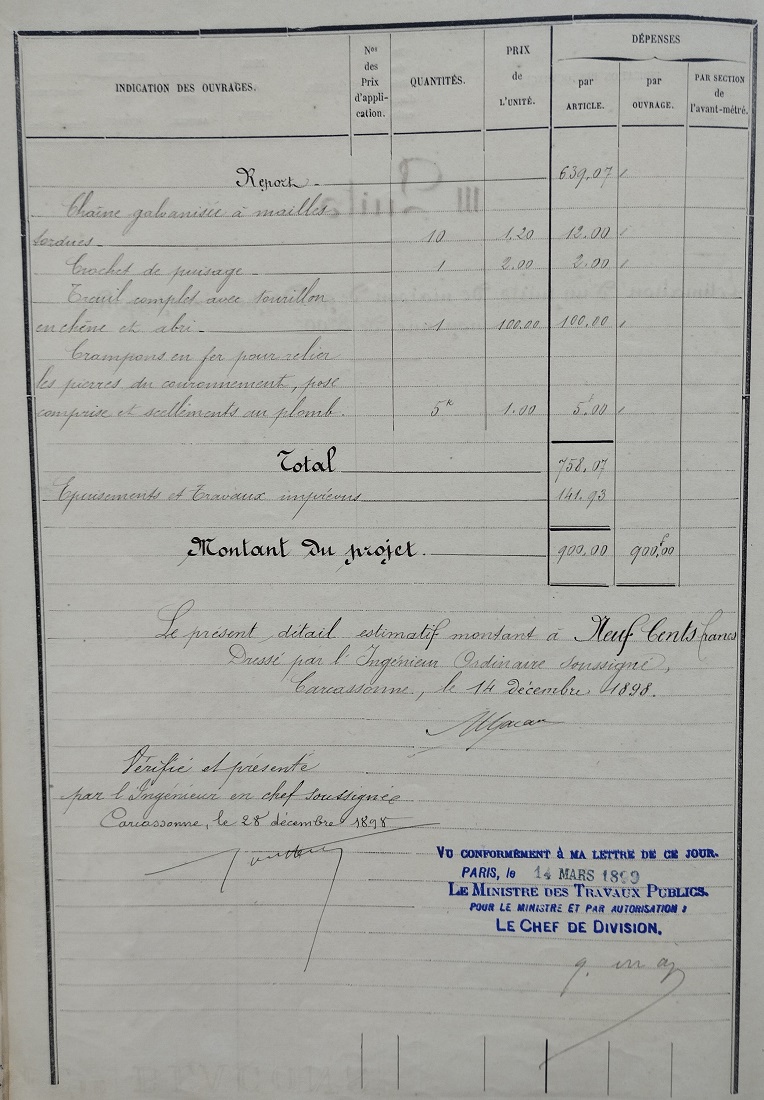 INDICATION DES OUVRAGES.
Nos des Prix d'appli-cation.
QUANTITÉS.
PRIX de L'UNITÉ.
DÉPENSES
par ARTICLE.
par OUVRAGE.
PAR SECTION de l'avant-métré.
Report 639.07
Chaîne galvanisée à mailles
tordues 10 1.20 12.00
Crochet de puisage 1 2.00 2.00
Treuil complet avec tourillon
en chêne et abri 1 100.00 100.00
Crampons en fer pour relier
les pierres du couronnement, pose
comprise et scellements au plomb. 5k 1.00 5.00
Total 758.07
Epuisements et Travaux imprévus 141.93
Montant du projet. 900.00 900f,00
Le présent détail estimatif montant à Neuf Cents francs
Dressé par l'Ingénieur Ordinaire soussigné,
Carcassonne, le 14 décembre 1898.
Vérifié et présenté
par l'Ingénieur en chef soussigné
Carcassonne, le 28 décembre 1898
VU CONFORMÉMENT À MA LETTRE DE CE JOUR.
PARIS, le 14 MARS 1899
LE MINISTRE DES TRAVAUX PUBLICS.
POUR LE MINISTRE ET PAR AUTORISATION :
LE CHEF DE DIVISION.